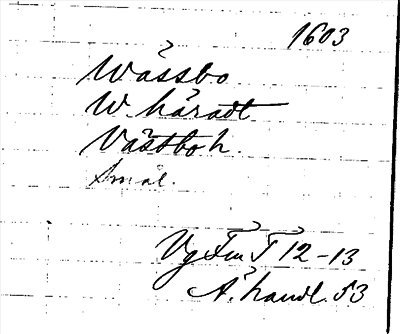 1603
Wässbo
W. häradt
Västbo h.
Smål.
Vg Fm T 12-13
Ä. handl. 53